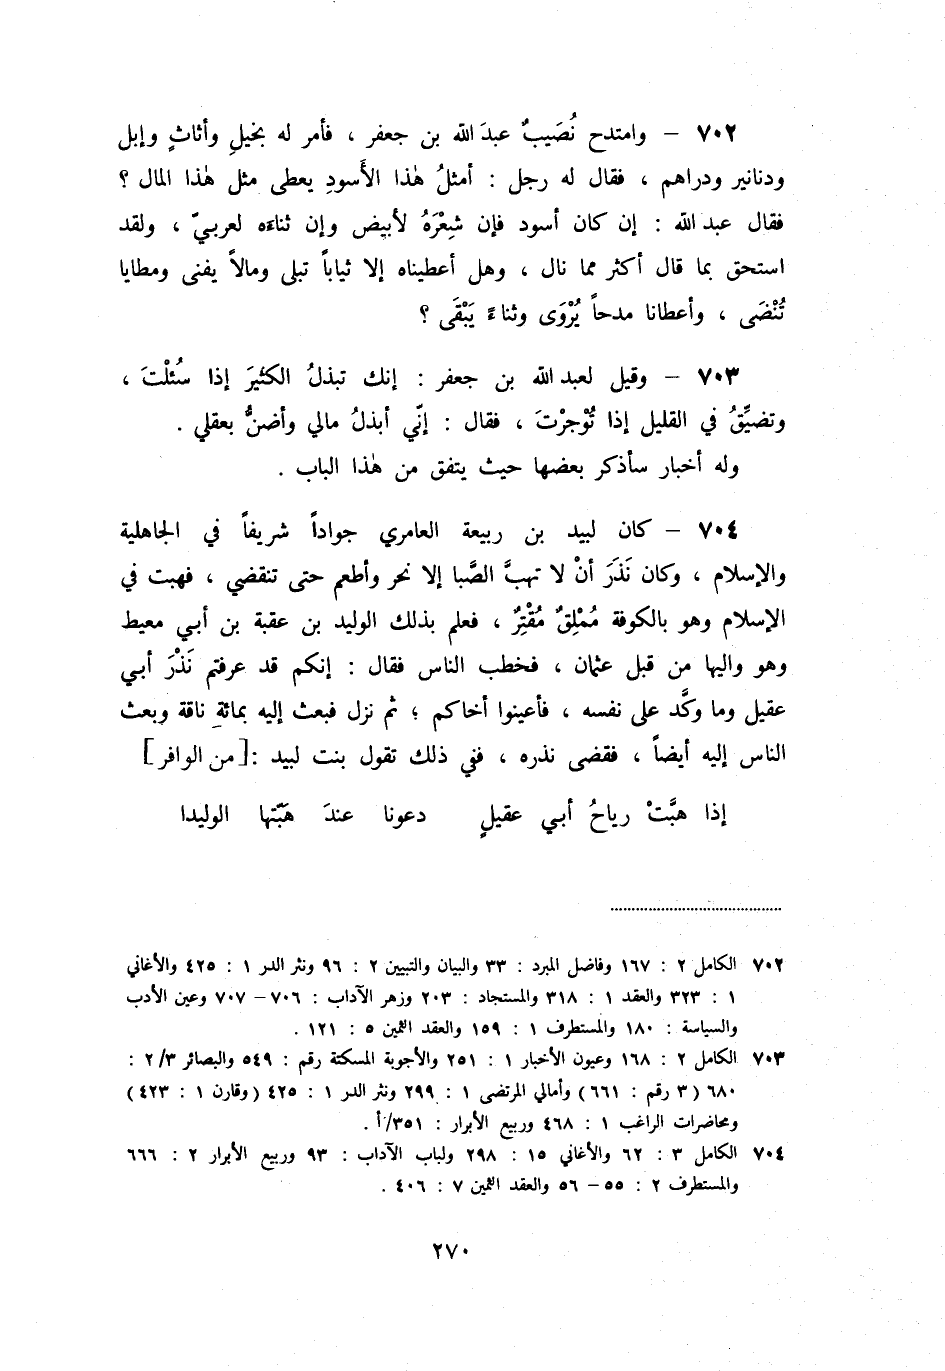 ٧٠٢ – وامتدح نُصَيبٌ عبدَ الله بن جعفر ، فأمر له بخيلِ وأثاثٍ وإبل
ودنانير ودراهم ، فقال له رجل : أمثلُ هٰذا الأَسودِ يعطى مثل هٰذا المال ؟
فقال عبد الله : إن كان أسود فإن شِعْرَهُ لأبيض وإن ثناءه لعربيّ ، ولقد
استحق بما قال أكثر مما نال ، وهل أعطيناه إلا ثياباً تبلى ومالاً يفنى ومطايا
تُنْضَى ، وأعطانا مدحاً يُرْوَى وثناءً يَبْقَى ؟
٧٠٣ – وقيل لعبد الله بن جعفر : إنك تبذلُ الكثيرَ إذا سُئلْتَ ،
وتضيِّقُ في القليل إذا تُوْجرْتَ ، فقال : إنّي أبذلُ مالي وأضنُّ بعقلي .
وله أخبار سأذكر بعضها حيث يتفق من هٰذا الباب .
٧٠٤ – كان لبيد بن ربيعة العامري جواداً شريفاً في الجاهلية
والإسلام ، وكان نَذَرَ أنْ لا تهبَّ الصَّبا إلا نحر وأطعم حتى تنقضي ، فهبت في
الإسلام وهو بالكوفة مُمْلِقٌ مُقْتِرٌ ، فعلم بذلك الوليد بن عقبة بن أبي معيط
وهو واليها من قبل عثمان ، فخطب الناس فقال : إنكم قد عرفتم نَذْرَ أبي
عقيل وما وكَّد على نفسه ، فأعينوا أخاكم ؛ ثم نزل فبعث إليه بمائة ناقة وبعث
الناس إليه أيضاً ، فقضى نذره ، ففي ذلك تقول بنت لبيد :[من الوافر]
إذا هبَّتْ رياحُ أبي عقيلٍ دعونا عندَ هَبّتها الوليدا
٧٠٢ الكامل ٢ : ١٦٧ وفاضل المبرد : ٣٣ والبيان والتبيين ٢ : ٩٦ ونثر الدر ١ : ٤٢٥ والأغاني
١ : ٣٢٣ والعقد ١ : ٣١٨ والمستجاد : ٢٠٣ وزهر الآداب : ٧٠٦ – ٧٠٧ وعين الأدب
والسياسة : ١٨٠ والمستطرف ١ : ١٥٩ والعقد الثمين ٥ : ١٢١ .
٧٠٣ الكامل ٢ : ١٦٨ وعيون الأخبار ١ : ٢٥١ والأجوبة المسكتة رقم : ٥٤٩ والبصائر ٣/ ٢ :
٦٨٠ (٣ رقم : ٦٦١) وأمالي المرتضى ١ : ٢٩٩ ونثر الدر ١ : ٤٢٥ (وقارن ١ : ٤٢٣)
ومحاضرات الراغب ١ : ٤٦٨ وربيع الأبرار : ٣٥١/أ .
٧٠٤ الكامل ٣ : ٦٢ والأغاني ١٥ : ٢٩٨ ولباب الآداب : ٩٣ وربيع الأبرار ٢ : ٦٦٦
والمستطرف ٢ : ٥٥ – ٥٦ والعقد الثمين ٧ : ٤٠٦ .
٢٧٠